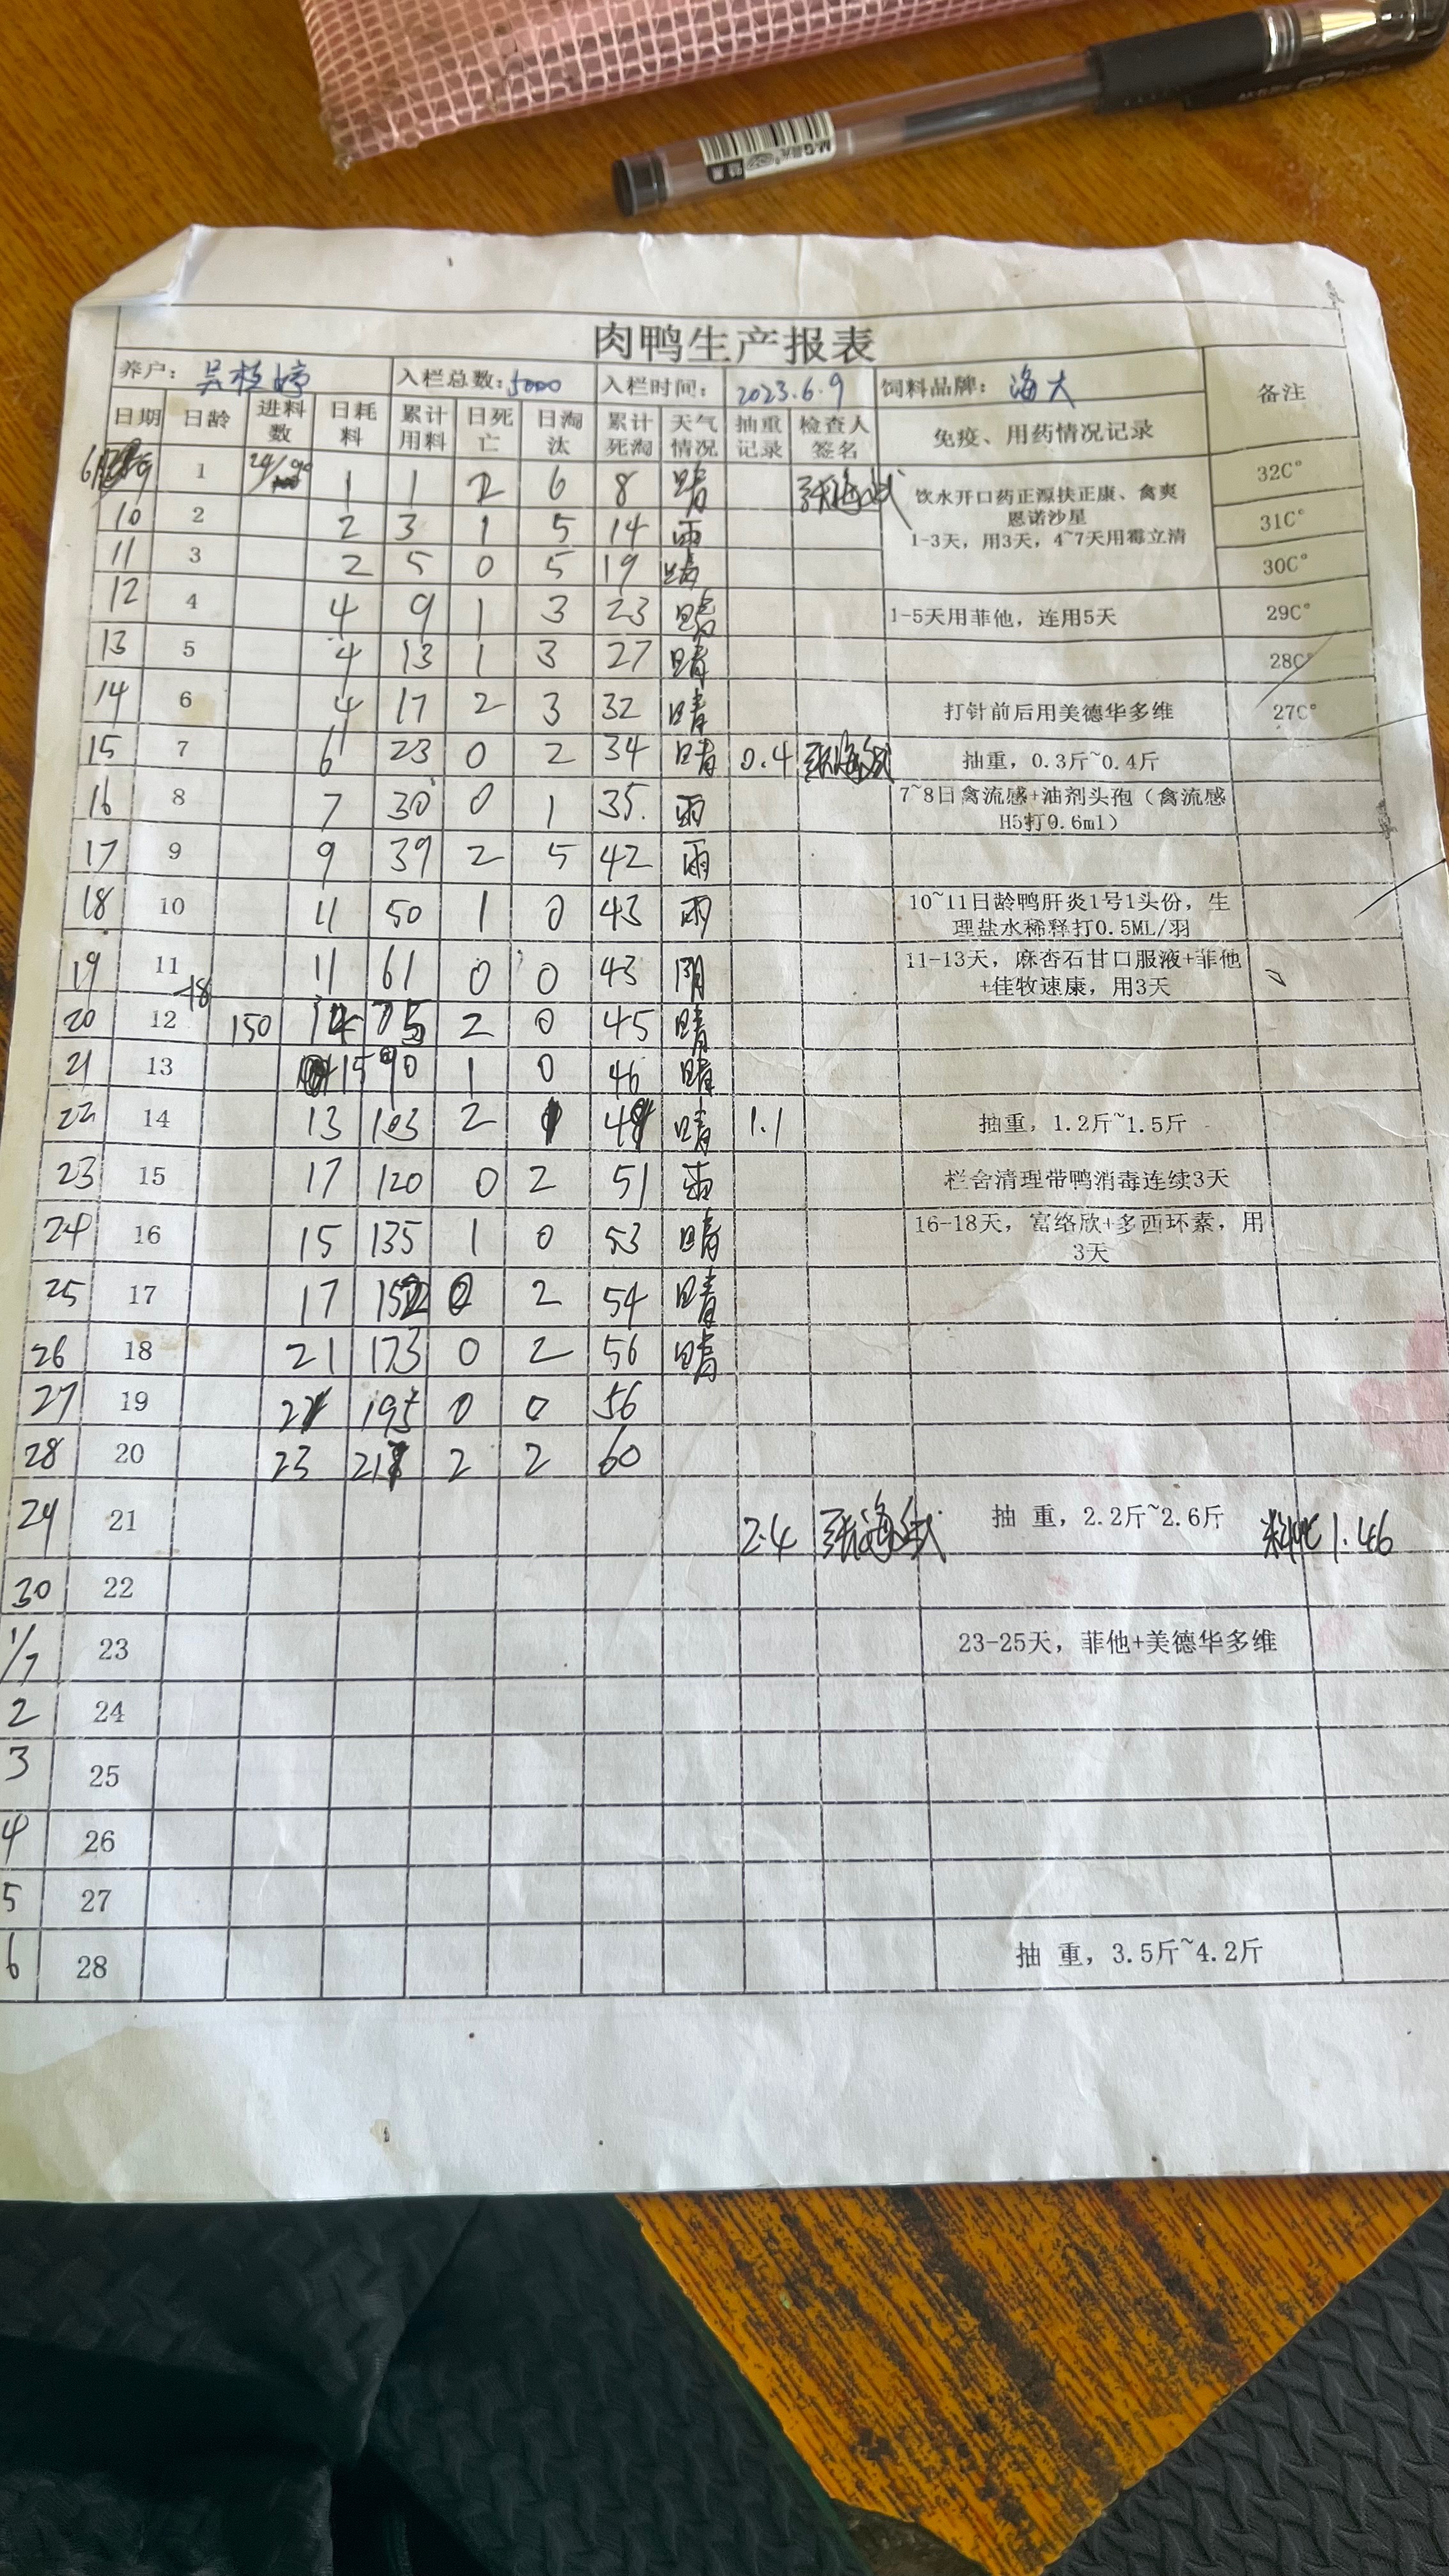 肉鸭生产报表
养户： 吴 入栏总数：5000 入栏时间： 2023.6.9 饲料品牌： 海大 备注
日期 日龄 进料数 日耗料 累计用料 日死亡 日淘汰 累计死淘 天气情况 抽重记录 检查人签名 免疫、用药情况记录
1 1 1 2 6 8 晴 饮水开口药正源扶正康、禽爽恩诺沙星 32C°
10 2 2 3 1 5 14 雨 1-3天，用3天，4~7天用霉立清 31C°
11 3 2 5 0 5 19 晴 30C°
12 4 4 9 1 3 23 晴 1-5天用菲他，连用5天 29C°
13 5 4 13 1 3 27 晴 28C°
14 6 4 17 2 3 32 晴 打针前后用美德华多维 27C°
15 7 6 23 0 2 34 晴 0.4 抽重，0.3斤~0.4斤
16 8 7 30 0 1 35. 雨 7~8日禽流感+油剂头孢（禽流感H5打0.6ml）
17 9 9 39 2 5 42 雨
18 10 11 50 1 0 43 雨 10~11日龄鸭肝炎1号1头份，生理盐水稀释打0.5ML/羽
19 11 11 61 0 0 43 阴 11-13天，麻杏石甘口服液+菲他+佳牧速康，用3天
18
20 12 150 14 75 2 0 45 晴
21 13 15 90 1 0 46 晴
22 14 13 103 2 晴 1.1 抽重，1.2斤~1.5斤
23 15 17 120 0 2 51 雨 栏舍清理带鸭消毒连续3天
24 16 15 135 1 0 53 晴 16-18天，富络欣+多西环素，用3天
25 17 17 152 0 2 54 晴
26 18 21 173 0 2 56 晴
27 19 195 0 0 56
28 20 23 218 2 2 60
29 21 2.4 抽 重，2.2斤~2.6斤 料比1.46
30 22
1/7 23 23-25天，菲他+美德华多维
2 24
3 25
4 26
5 27
6 28 抽 重，3.5斤~4.2斤